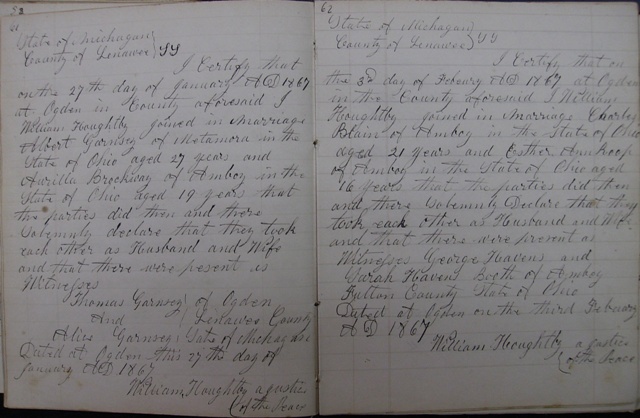 52
61
State of Michagan
County of Lenawee } SS
I Certify that
on the 27th day of January AD 1867
at Ogden in County aforesaid I
William Houghtby joined in marriage
Albert Garnsey of Metamora in the
State of Ohio aged 27 years and
Aurilla Brockway of Amboy in the
State of Ohio aged 19 years that
the parties did then and there
Solemnly declare that they took
each other as Husband and Wife
and that there were present as
Witnesses
Thomas Garnsey } of Ogden
And } Lenawee County
Alice Garnsey } State of Michagan
Dated at Ogden this 27th day of
January AD 1867
William Houghtby a justice
of the Peace
62
State of Michagan
County of Lenawee } SS
I Certify that on
the 3d day of Febuary AD 1867 at Ogden
in the County aforesaid I William
Houghtby joined in marriage Charles
Blain of Amboy in the State of Ohio
aged 21 years and Esther
of Amboy in the State of Ohio aged
16 years that the parties did then
and there Solemnly Declare that they
took each other as Husband and Wife
and that there were present as
Witnesses George Havens and
Sarah Havens Both of Amboy
Fulton County State of Ohio
Dated at Ogden on the third Febuary
AD 1867
William Houghtby a justice
of the Peace